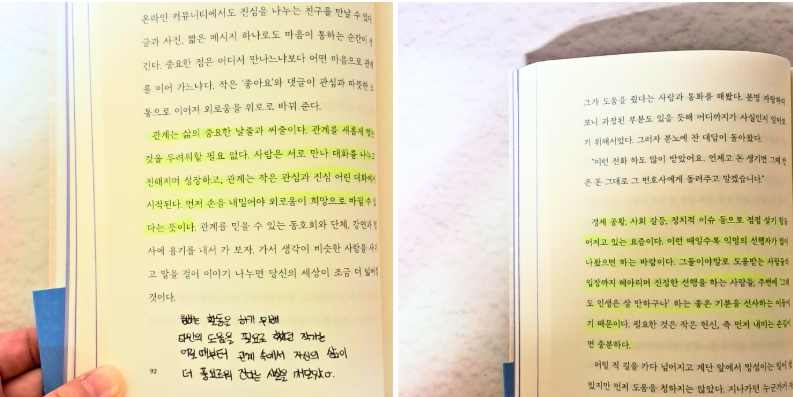 온라인 커뮤니티에서도 진심을 나누는 친구를 만날 수 있다.
글과 사진, 짧은 메시지 하나로도 마음이 통하는 순간이 생
긴다. 중요한 점은 어디서 만나느냐보다 어떤 마음으로 관계
를 이어 가느냐다. 작은 '좋아요'와 댓글이 관심과 따뜻한 소
통으로 이어져 외로움을 위로로 바꿔 준다.
관계는 삶의 중요한 날줄과 씨줄이다. 관계를 새롭게 맺는
것을 두려워할 필요 없다. 사람은 서로 만나 대화를 나누고
친해지며 성장하고, 관계는 작은 관심과 진심 어린 대화에서
시작된다. 먼저 손을 내밀어야 외로움이 희망으로 바뀔 수 있
다는 뜻이다. 관계를 믿을 수 있는 동호회와 단체, 강연과 행
사에 용기를 내서 가 보자. 가서 생각이 비슷한 사람을 사귀
고 말을 걸어 이야기 나누면 당신의 세상이 조금 더 넓어질
것이다.
하는 활동을 하기 위해
타인의 도움을 필요로 했던 작가는
어릴 때부터 관계 속에서 자신의 삶이
더 풍요로워 진다는 사실을 깨달았다.
92
그가 도움을 줬다는 사람과 통화를 해봤다. 분명 자랑하다
보니 과장된 부분도 있을 듯해 어디까지가 사실인지 알아보
기 위해서였다. 그러자 분노에 찬 대답이 돌아왔다.
"이런 전화 하도 많이 받았어요. 언제고 돈 생기면 그때 받
은 돈 그대로 그 변호사에게 돌려주고 말겠습니다."
경제 공황, 사회 갈등, 정치적 이슈 등으로 점점 살기 힘들
어지고 있는 요즘이다. 이런 때일수록 익명의 선행자가 많이
나왔으면 하는 바람이다. 그들이야말로 도움받는 사람들의
입장까지 헤아리며 진정한 선행을 하는 사람들, 주변에 '그래
도 인생은 살 만하구나' 하는 좋은 기분을 선사하는 이들이
기 때문이다. 필요한 것은 작은 헌신, 즉 먼저 내미는 손길이
면 충분하다.
어릴 적 길을 가다 넘어지고 계단 앞에서 망설이는 일이
있었지만 먼저 도움을 청하지는 않았다. 지나가던 누군가가